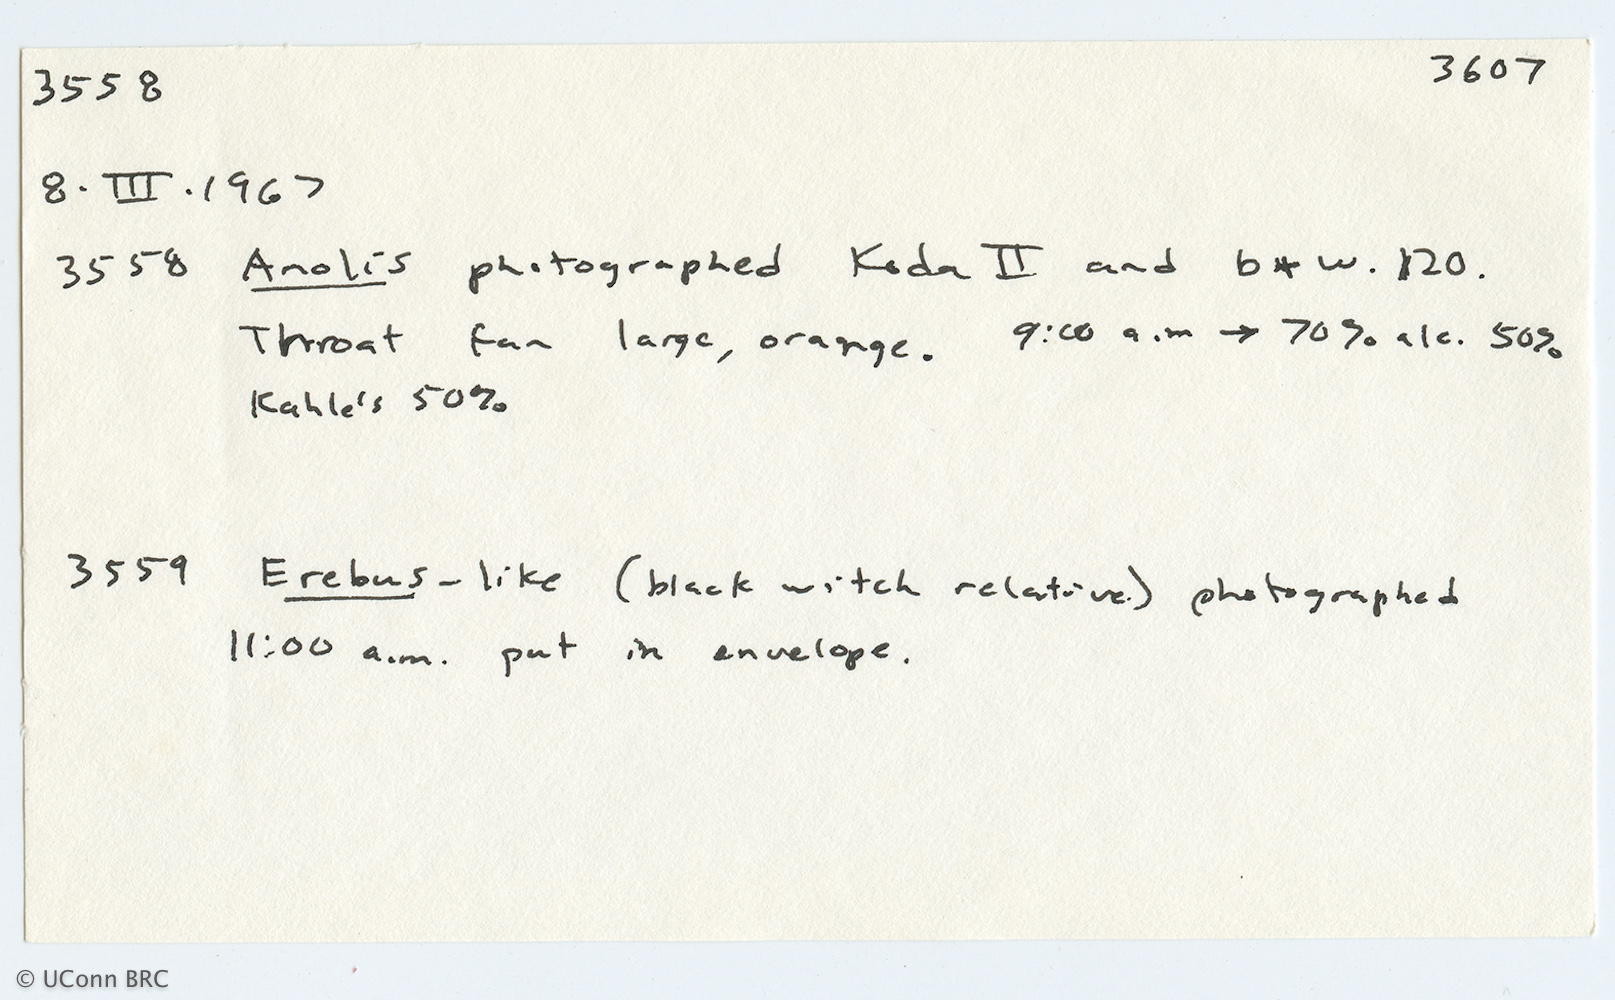 3558 3607
8.III.1967
3558 Anolis photographed Koda II and b+w. 120.
Throat fan large, orange. 9:00 a.m → 70% alc. 50%
Kahle's 50%
3559 Erebus-like (black witch relative.) photographed
11:00 a.m. put in envelope.
© UConn BRC